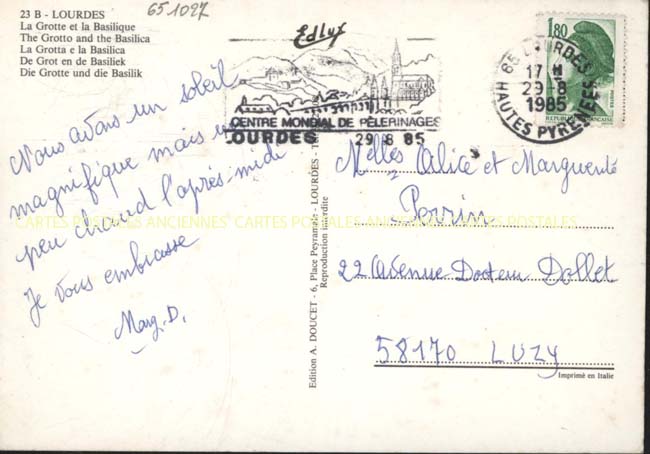 23 B - LOURDES
La Grotte et la Basilique
The Grotto and the Basilica
La Grotta e la Basilica
De Grot en de Basiliek
Die Grotte und die Basilik
651027
Edluf
CENTRE MONDIAL DE PÈLERINAGES
OURDES 29 8 85
65 LOURDES
17 H
29-8
1985
HAUTES PYRENEES
1,80
REPUBLIQUE FRANÇAISE
Nous avons un soleil
magnifique mais un
peu chaud l'après-midi
Je vous embrasse
Marg. D.
Edition A. DOUCET - 6, Place Peyramale - LOURDES -
Reproduction interdite
Melles Alice et Marguerite
Perrin
22 Avenue Docteur Dollet
58170 LUZY
Imprimé en Italie
CARTES POSTALES ANCIENNES CARTES POSTALES ANCIENNES CARTES POSTALES